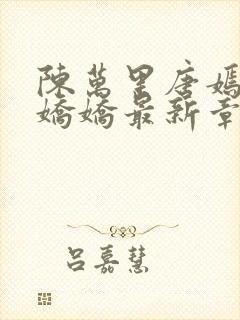 陳萬里唐嫣
嬌嬌最新章
呂嘉慧